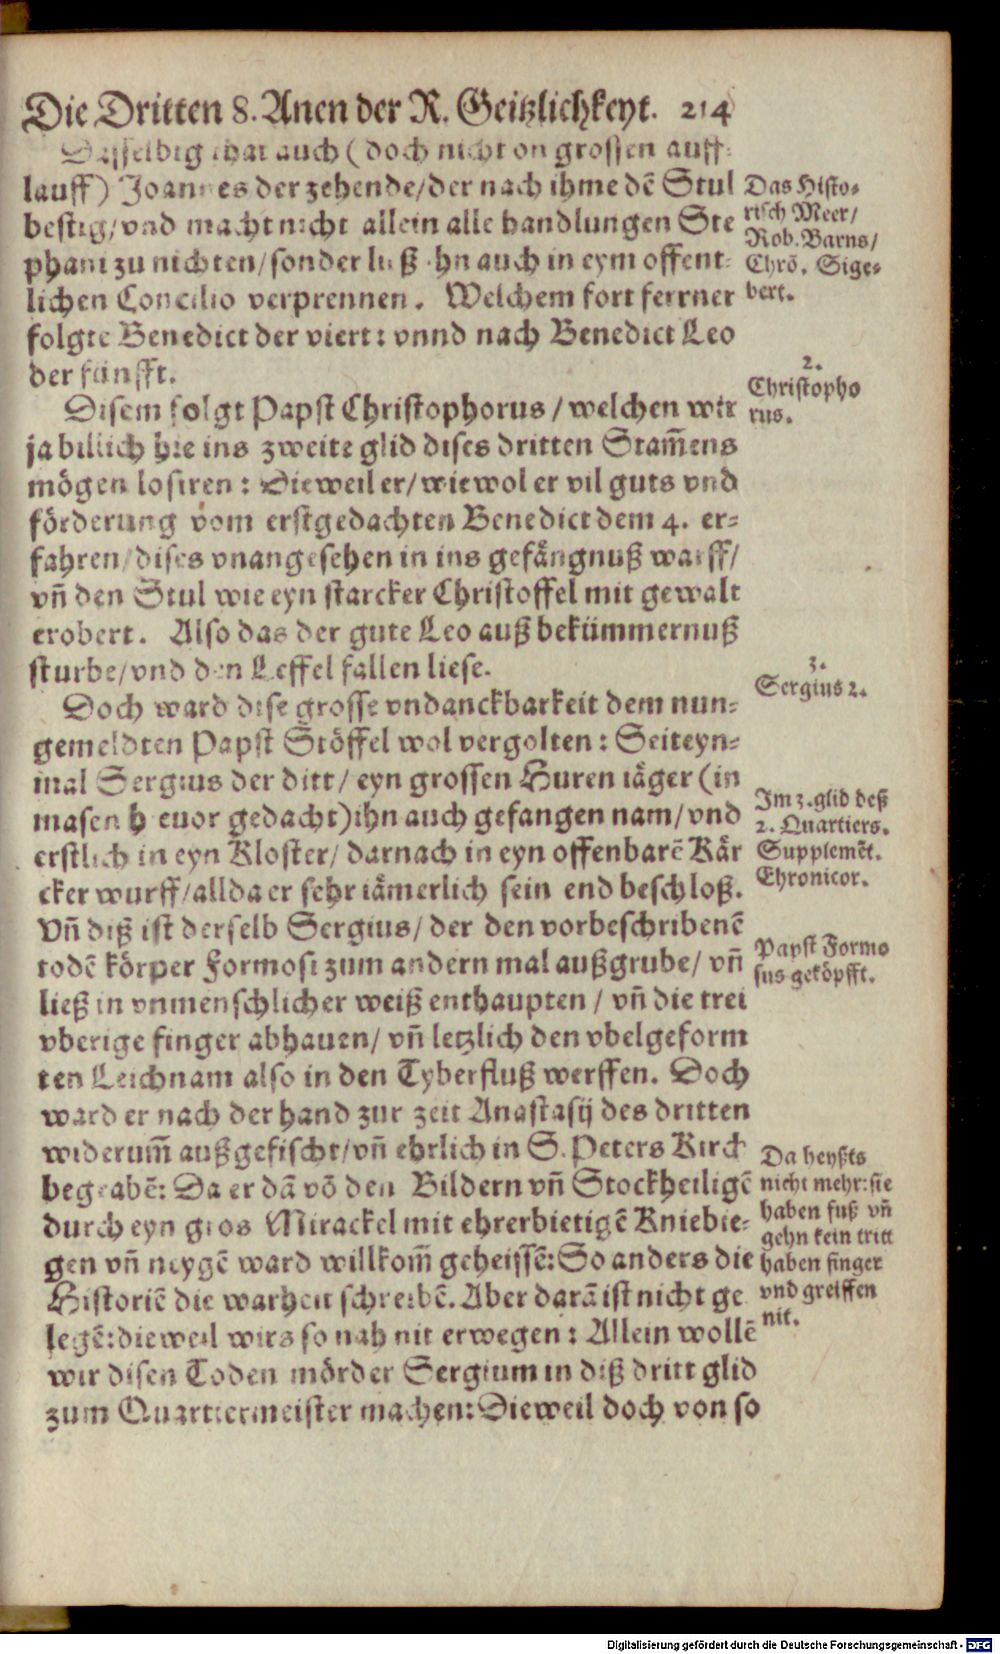 Die Dritten 8. Anen der R. Geitzlichkeyt. 214
Dasselbig that auch (doch nicht on grossen auff-
lauff) Joannes der zehende/der nach ihme dē Stul
bestig/vnd macht nicht allein alle handlungen Ste
phani zu nichten/sonder ließ ihn auch in eym offent-
lichen Concilio verprennen. Welchem fort ferrner
folgte Benedict der viert: vnnd nach Benedict Leo
der fünfft.
Das Histo-
risch Meer/
Rob. Barns/
Chrō. Sige-
bert.
Disem folgt Papst Christophorus/welchen wir
ja billich hie ins zweite glid dises dritten Stam̄ens
mögen losiren: Dieweil er/wiewol er vil guts vnd
förderung vom erstgedachten Benedict dem 4. er-
fahren/dises vnangesehen in ins gefängnuß warff/
vn̄ den Stul wie eyn starcker Christoffel mit gewalt
erobert. Also das der gute Leo auß bekümmernuß
sturbe/vnd den Leffel fallen liese.
2.
Christopho
rus.
Doch ward dise grosse vndanckbarkeit dem nun-
gemeldten Papst Stöffel wol vergolten: Seiteyn-
mal Sergius der ditt/eyn grossen Huren iäger (in
masen hieuor gedacht)ihn auch gefangen nam/vnd
erstlich in eyn Kloster/darnach in eyn offenbarē Kär
cker wurff/allda er sehr iämerlich sein end beschloß.
Vn̄ diß ist derselb Sergius/der den vorbeschribenē
todē körper Formosi zum andern mal außgrube/vn̄
ließ in vnmenschlicher weiß enthaupten/vn̄ die trei
vberige finger abhauen/vn̄ letzlich den vbelgeform
ten Leichnam also in den Tyberfluß werffen. Doch
ward er nach der hand zur zeit Anastasij des dritten
widerum̄ außgefischt/vn̄ ehrlich in S. Peters Kirch
begrabē: Da er dā vō den Bildern vn̄ Stockheiligē
durch eyn gros Mirackel mit ehrerbietigē Kniebie-
gen vn̄ neygē ward willkom̄ geheissē: So anders die
Historiē die warheit schreibē. Aber darā ist nicht ge
legē: dieweil wirs so nah nit erwegen: Allein wollē
wir disen Toden mörder Sergium in diß dritt glid
zum Quartiermeister machen: Dieweil doch von so
3.
Sergius 2.
Im 3. glid deß
2. Quartiers.
Supplemēt.
Chronicor.
Papst Formo
sus geköpfft.
Da heyßts
nicht mehr: sie
haben fuß vn̄
gehn kein tritt
haben finger
vnd greiffen
nit.
Digitalisierung gefördert durch die Deutsche Forschungsgemeinschaft - DFG